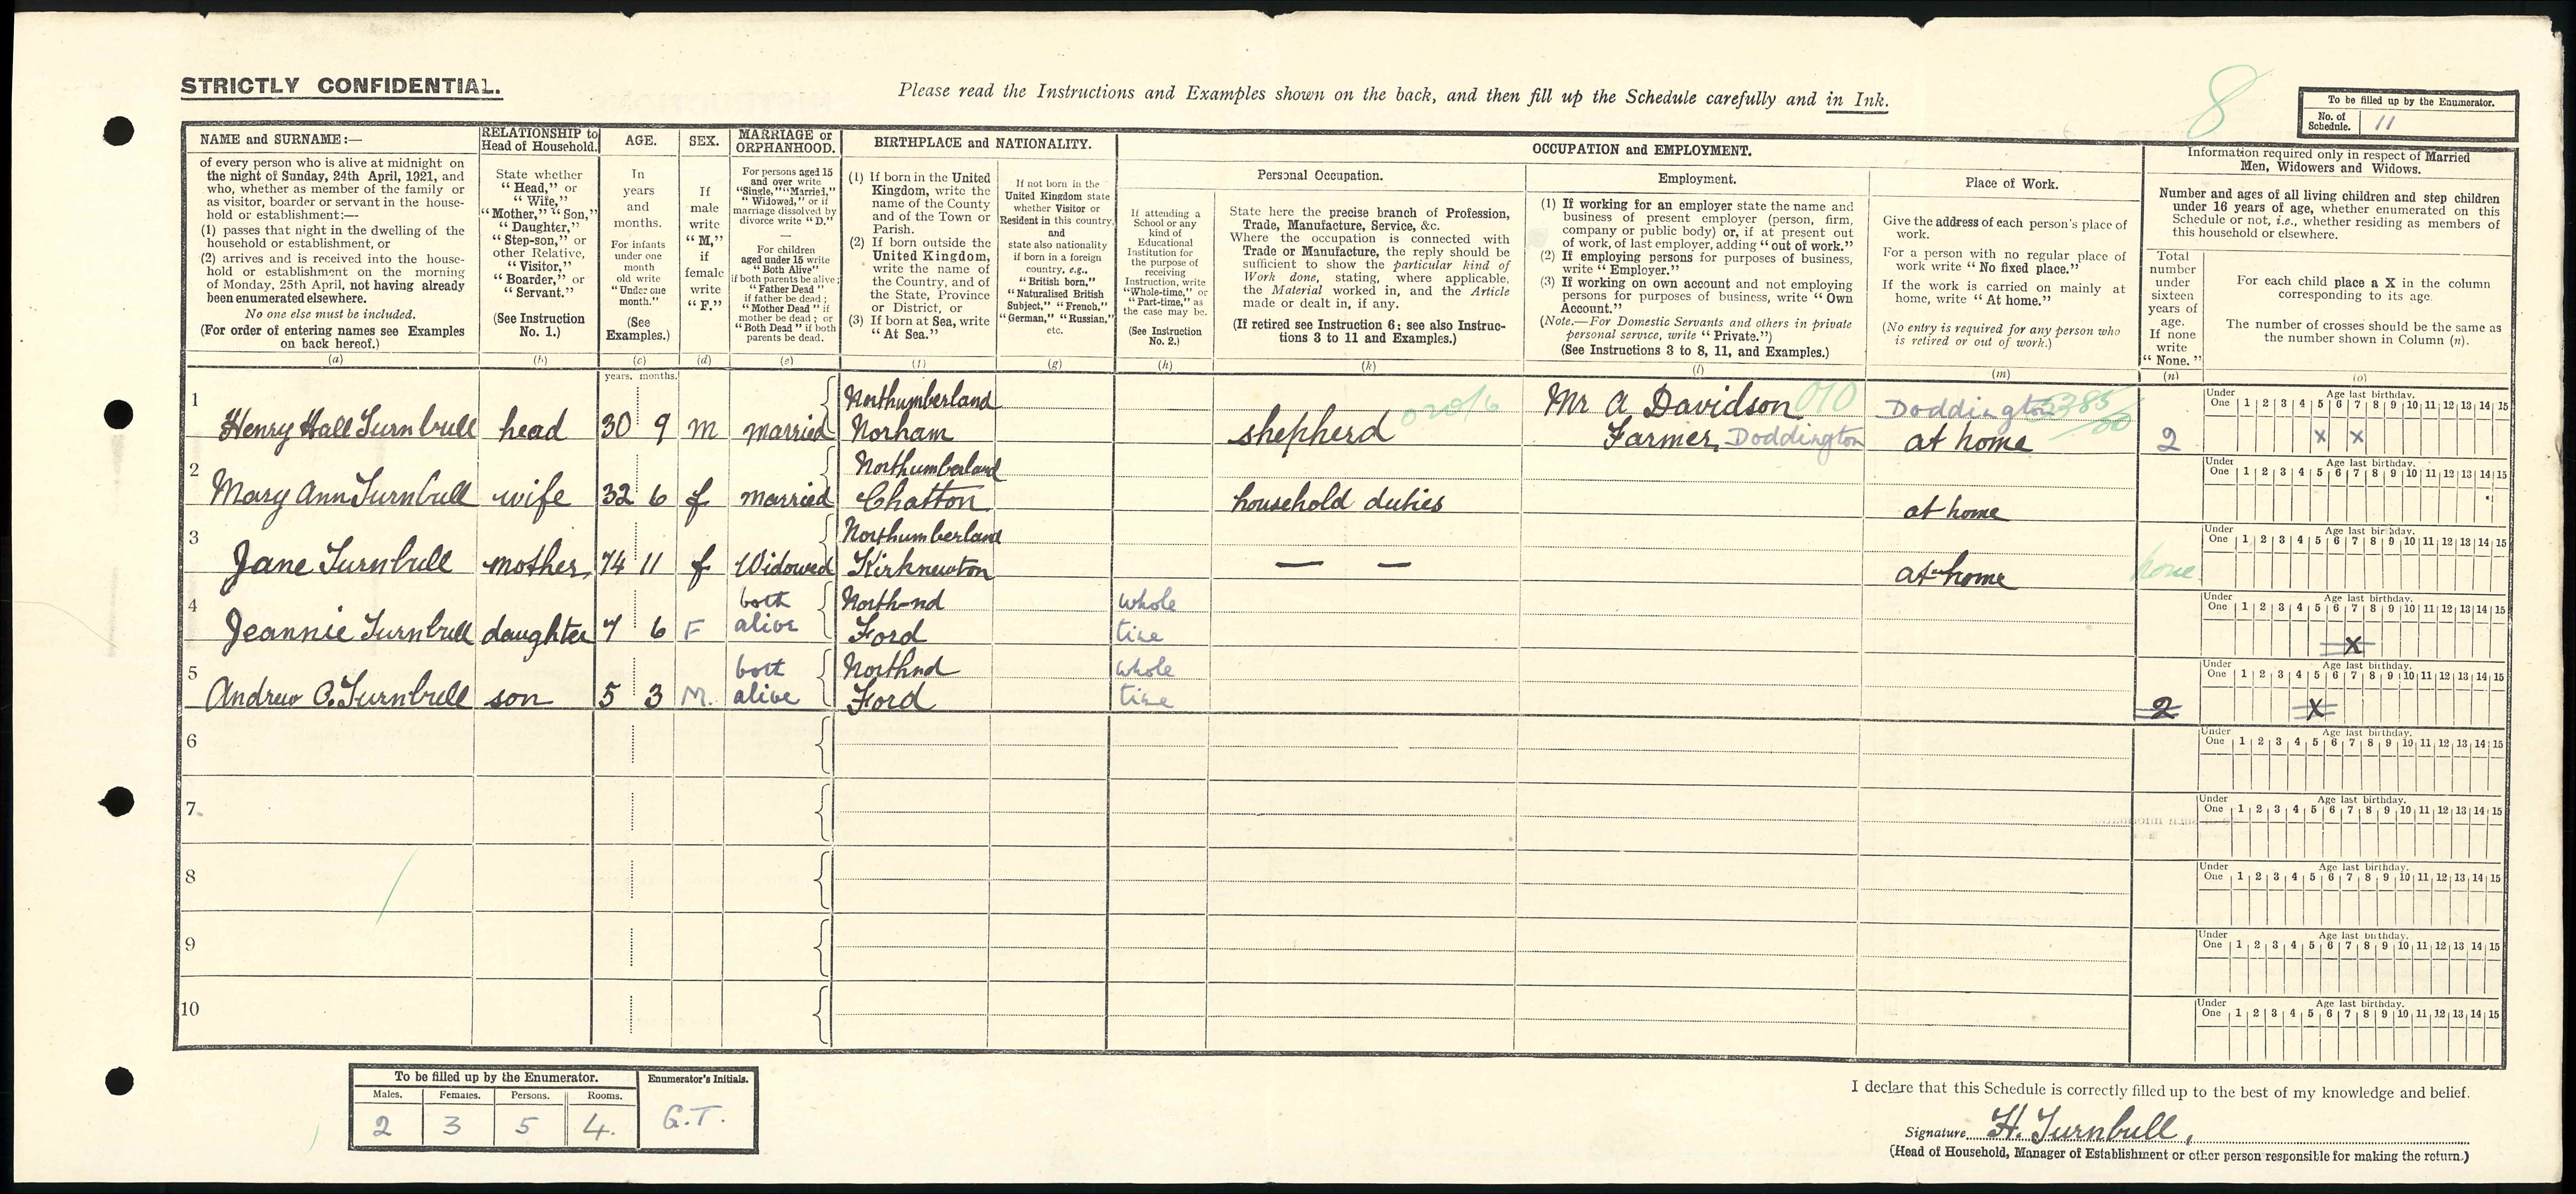 STRICTLY CONFIDENTIAL.
Please read the Instructions and Examples shown on the back, and then fill up the Schedule carefully and in Ink.
8
To be filled up by the Enumerator.
No. of Schedule. 11
NAME and SURNAME:—
of every person who is alive at midnight on
the night of Sunday, 24th April, 1921, and
who, whether as member of the family or
as visitor, boarder or servant in the house-
hold or establishment:—
(1) passes that night in the dwelling of the
household or establishment, or
(2) arrives and is received into the house-
hold or establishment on the morning
of Monday, 25th April, not having already
been enumerated elsewhere.
No one else must be included.
(For order of entering names see Examples
on back hereof.)
(a)
RELATIONSHIP to
Head of Household.
State whether
"Head," or
"Wife,"
"Mother," "Son,"
"Daughter,"
"Step-son," or
other Relative,
"Visitor,"
"Boarder," or
"Servant."
(See Instruction
No. 1.)
(b)
AGE.
In
years
and
months.
For infants
under one
month
old write
"Under one
month."
(See
Examples.)
(c)
SEX.
If
male
write
"M,"
if
female
write
"F."
(d)
MARRIAGE or
ORPHANHOOD.
For persons aged 15
and over write
"Single," "Married,"
"Widowed," or if
marriage dissolved by
divorce write "D."
—
For children
aged under 15 write
"Both Alive"
if both parents be alive;
"Father Dead"
if father be dead;
"Mother Dead" if
mother be dead; or
"Both Dead" if both
parents be dead.
(e)
BIRTHPLACE and NATIONALITY.
(1) If born in the United
Kingdom, write the
name of the County
and of the Town or
Parish.
(2) If born outside the
United Kingdom,
write the name of
the Country, and of
the State, Province
or District, or
(3) If born at Sea, write
"At Sea."
(f)
If not born in the
United Kingdom state
whether Visitor or
Resident in this country,
and
state also nationality
if born in a foreign
country, e.g.,
"British born,"
"Naturalised British
Subject," "French,"
"German," "Russian,"
etc.
(g)
OCCUPATION and EMPLOYMENT.
If attending a
School or any
kind of
Educational
Institution for
the purpose of
receiving
Instruction, write
"Whole-time," or
"Part-time," as
the case may be.
(See Instruction
No. 2.)
(h)
Personal Occupation.
State here the precise branch of Profession,
Trade, Manufacture, Service, &c.
Where the occupation is connected with
Trade or Manufacture, the reply should be
sufficient to show the particular kind of
Work done, stating, where applicable,
the Material worked in, and the Article
made or dealt in, if any.
(If retired see Instruction 6; see also Instruc-
tions 3 to 11 and Examples.)
(k)
Employment.
(1) If working for an employer state the name and
business of present employer (person, firm,
company or public body) or, if at present out
of work, of last employer, adding "out of work."
(2) If employing persons for purposes of business,
write "Employer."
(3) If working on own account and not employing
persons for purposes of business, write "Own
Account."
(Note.—For Domestic Servants and others in private
personal service, write "Private.")
(See Instructions 3 to 8, 11, and Examples.)
(l)
Place of Work.
Give the address of each person's place of
work.
For a person with no regular place of
work write "No fixed place."
If the work is carried on mainly at
home, write "At home."
(No entry is required for any person who
is retired or out of work.)
(m)
Information required only in respect of Married
Men, Widowers and Widows.
Number and ages of all living children and step children
under 16 years of age, whether enumerated on this
Schedule or not, i.e., whether residing as members of
this household or elsewhere.
Total
number
under
sixteen
years of
age.
If none
write
"None."
(n)
For each child place a X in the column
corresponding to its age.
The number of crosses should be the same as
the number shown in Column (n).
(o)
years. months.
Under One 1 2 3 4 5 6 7 8 9 10 11 12 13 14 15
Age last birthday.
1 Henry Hall Turnbull head 30 9 m married Northumberland Norham shepherd Mr A Davidson 010 Farmer, Doddington Doddington at home 2 x x
Under One 1 2 3 4 5 6 7 8 9 10 11 12 13 14 15
Age last birthday.
2 Mary Ann Turnbull wife 32 6 f married Northumberland Chatton household duties at home
Under One 1 2 3 4 5 6 7 8 9 10 11 12 13 14 15
Age last birthday.
3 Jane Turnbull mother, 74 11 f Widowed Northumberland Kirknewton — — at home none
Under One 1 2 3 4 5 6 7 8 9 10 11 12 13 14 15
Age last birthday.
4 Jeannie Turnbull daughter 7 6 F both alive North-nd Ford whole time X
Under One 1 2 3 4 5 6 7 8 9 10 11 12 13 14 15
Age last birthday.
5 Andrew C. Turnbull son 5 3 M. both alive Northnd Ford whole time 2 X
Under One 1 2 3 4 5 6 7 8 9 10 11 12 13 14 15
Age last birthday.
6
Under One 1 2 3 4 5 6 7 8 9 10 11 12 13 14 15
Age last birthday.
7
Under One 1 2 3 4 5 6 7 8 9 10 11 12 13 14 15
Age last birthday.
8
Under One 1 2 3 4 5 6 7 8 9 10 11 12 13 14 15
Age last birthday.
9
Under One 1 2 3 4 5 6 7 8 9 10 11 12 13 14 15
Age last birthday.
10
Under One 1 2 3 4 5 6 7 8 9 10 11 12 13 14 15
Age last birthday.
To be filled up by the Enumerator.
Enumerator's Initials.
Males. Females. Persons. Rooms.
2 3 5 4. G.T.
I declare that this Schedule is correctly filled up to the best of my knowledge and belief.
Signature H. Turnbull,
(Head of Household, Manager of Establishment or other person responsible for making the return.)